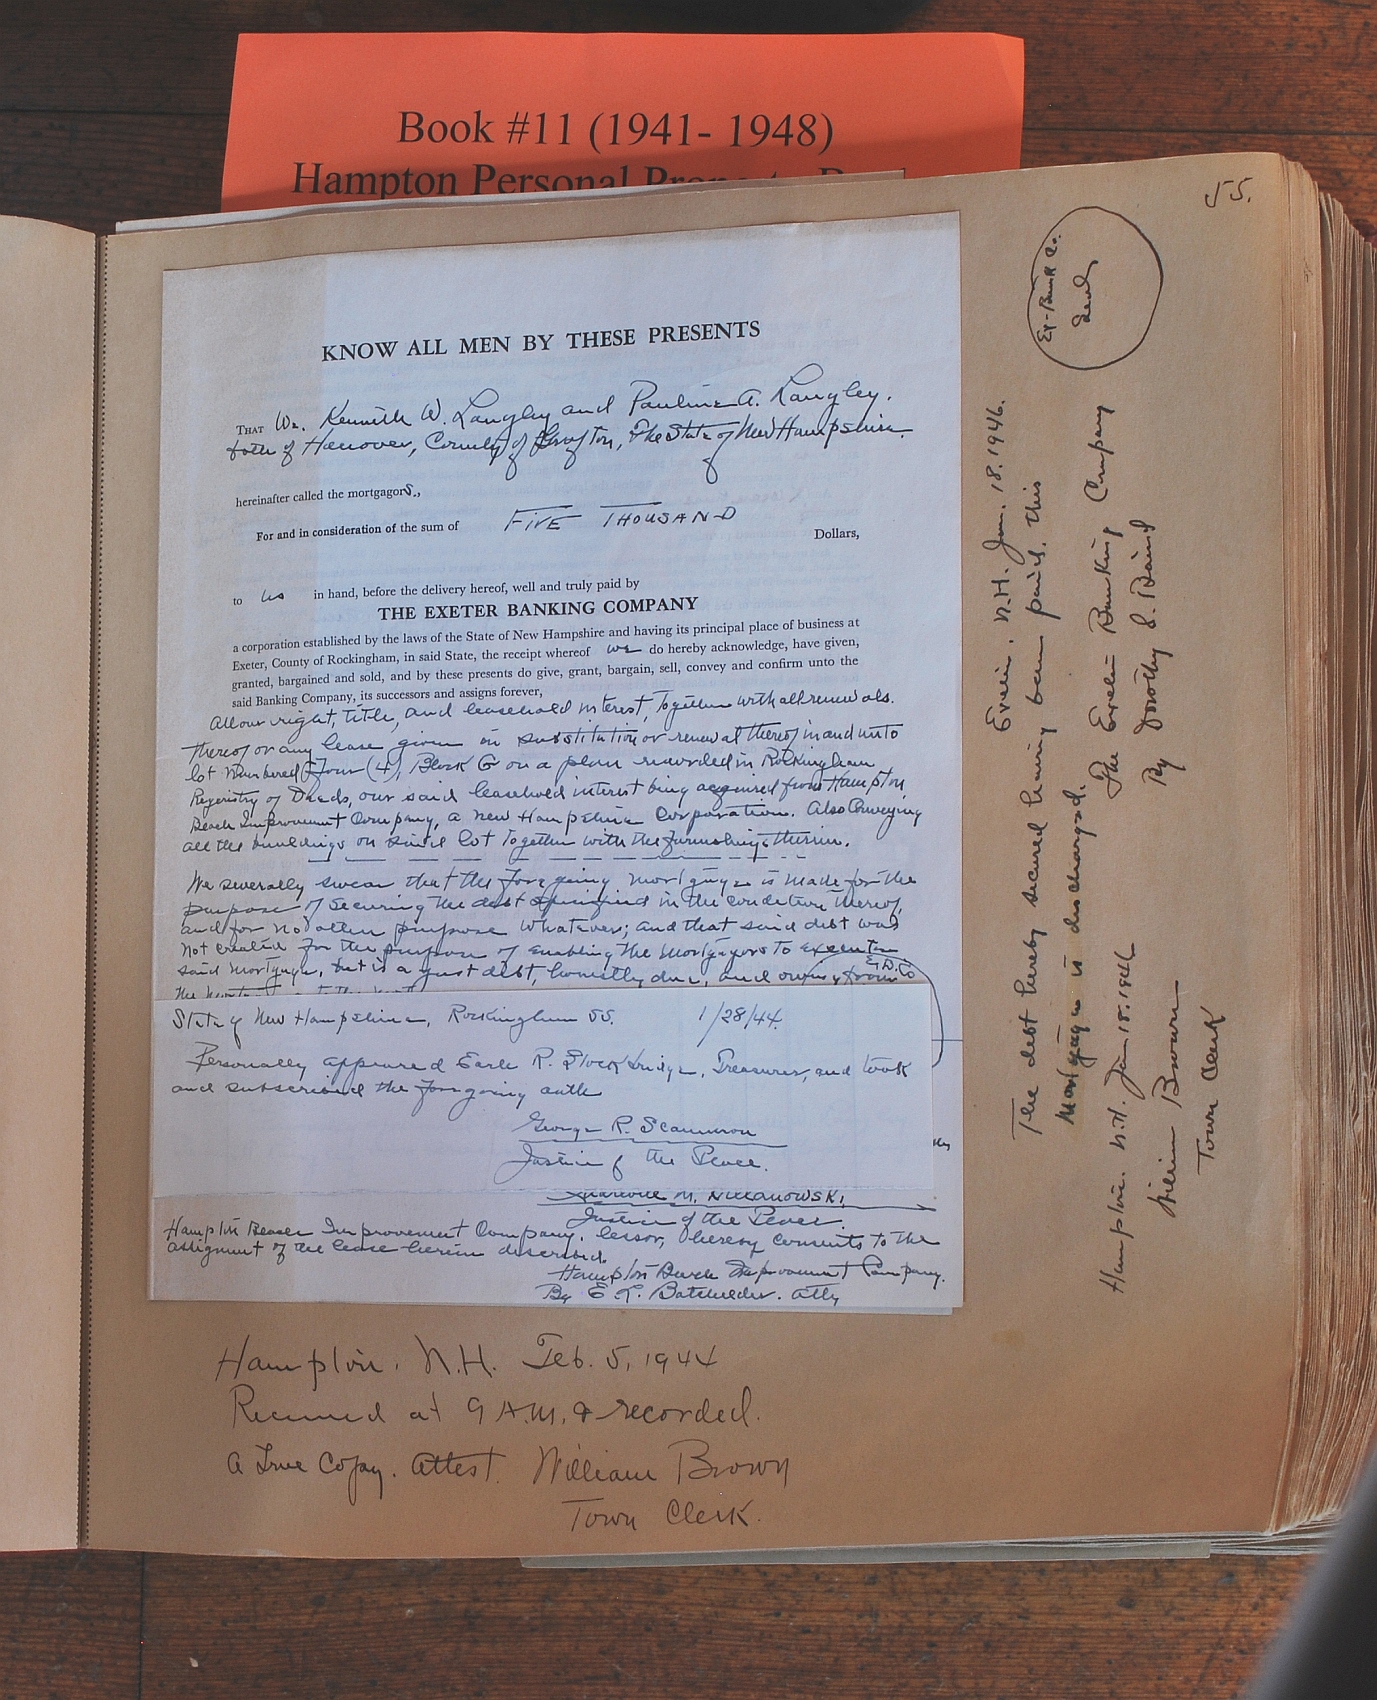 Book #11 (1941- 1948)
Hampton Personal
55.
KNOW ALL MEN BY THESE PRESENTS
THAT We, Kenneth W. Langley and Pauline A. Langley,
both of Hanover, County of Grafton, The State of New Hampshire.
hereinafter called the mortgagorS.,
For and in consideration of the sum of FIVE THOUSAND
Dollars,
to us in hand, before the delivery hereof, well and truly paid by
THE EXETER BANKING COMPANY
a corporation established by the laws of the State of New Hampshire and having its principal place of business at
Exeter, County of Rockingham, in said State, the receipt whereof we do hereby acknowledge, have given,
granted, bargained and sold, and by these presents do give, grant, bargain, sell, convey and confirm unto the
said Banking Company, its successors and assigns forever,
All our right, title, and leasehold interest, together with all renewals.
thereof or any lease given in substitution or renewal thereof in and unto
lot numbered Four (4), Block G on a plan recorded in Rockingham
Registry of Deeds, our said leasehold interest being acquired from Hampton
Beach Improvement Company, a New Hampshire Corporation. Also Conveying
all the buildings on said lot together with the furnishings therein.
We severally swear that the foregoing mortgage is made for the
purpose of securing the debt specified in the condition thereof,
and for no other purpose whatever; and that said debt was
not created for the purpose of enabling the mortgagors to execute
said mortgage, but is a just debt, honestly due, and owing from
State of New Hampshire, Rockingham SS. 1/28/44.
Personally appeared Earle R. Stockbridge, Treasurer, and took
and subscribed the foregoing oath
George R. Scammon
Justice of the Peace.
Justice of the Peace.
Hampton Beach Improvement Company, lessor, hereby consents to the
assignment of the lease herein described.
Hampton Beach Improvement Company.
By E. L. Batchelder. Atty
Hampton, N.H. Feb. 5, 1944
Received at 9 A.M. & recorded.
A True Copy. Attest. William Brown
Town Clerk.
Ex-Bank Co.
Exeter, N.H. Jan. 18. 1946.
The debt hereby secured having been paid, this
Mortgage is discharged.
The Exeter Banking Company
By Dorothy S.
Hampton. N.H. Jan 18. 1946
William Brown
Town Clerk